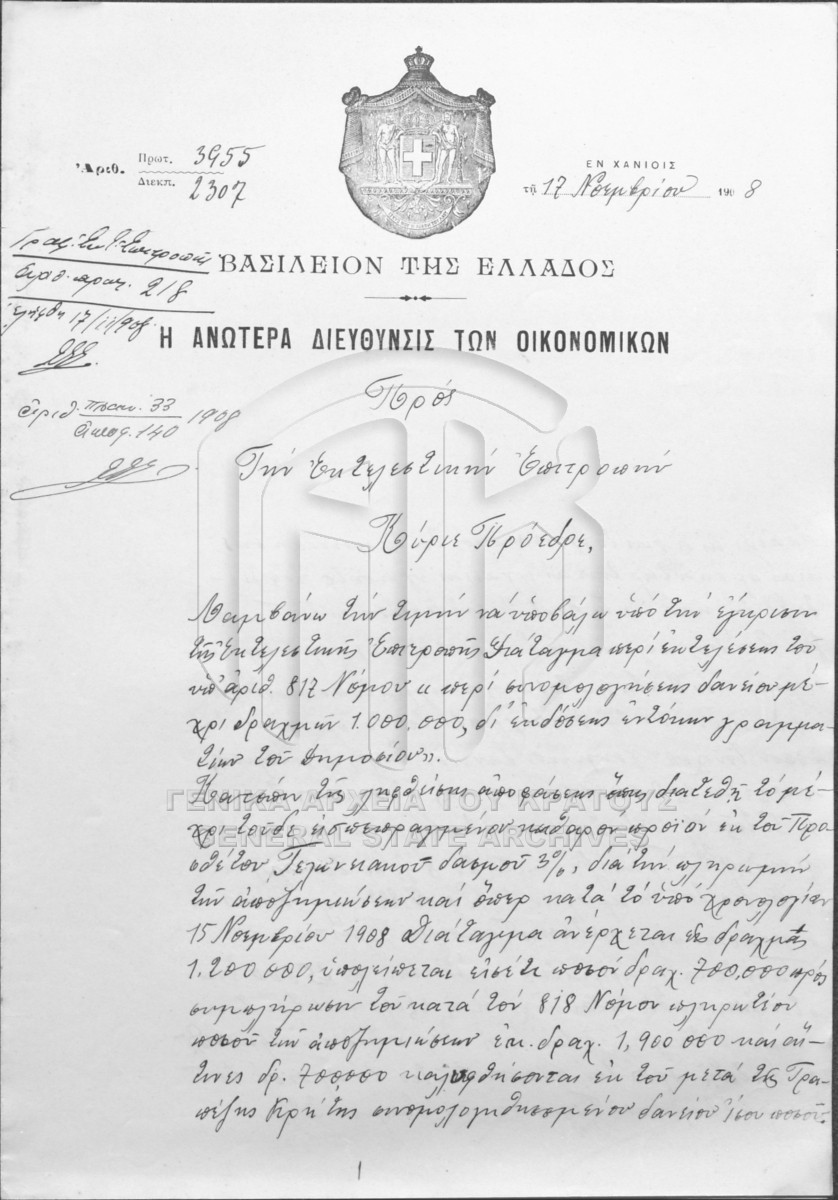 Ἀριθ. Πρωτ. 3955
Διεκπ. 2307
ΕΝ ΧΑΝΙΟΙΣ
τῇ 17 Νοεμβρίου 1908
Γραφ. Ἐκτ. Ἐπιτροπῆς
Ἀριθ. πρωτ. 218
Ἐλήφθη 17/11/908
ΒΑΣΙΛΕΙΟΝ ΤΗΣ ΕΛΛΑΔΟΣ
Η ΑΝΩΤΕΡΑ ΔΙΕΥΘΥΝΣΙΣ ΤΩΝ ΟΙΚΟΝΟΜΙΚΩΝ
Ἀριθ. πρακ. 33
ἀποφ. 140 1908
Πρὸς
Τὴν Ἐκτελεστικὴν Ἐπιτροπήν
Κύριε Πρόεδρε,
Λαμβάνω τὴν τιμὴν νὰ ὑποβάλω ὑπὸ τὴν ἔγκρισιν
τῆς Ἐκτελεστικῆς Ἐπιτροπῆς Διάταγμα περὶ ἐκτελέσεως τοῦ
ὑπ' ἀριθ. 817 Νόμου « περὶ συνομολογήσεως δανείου μέ-
χρι δραχμῶν 1.000,000, δι' ἐκδόσεως ἐντόκων γραμμα-
τίων τοῦ δημοσίου».
Κατόπιν τῆς ληφθείσης ἀποφάσεως ὅπως διατεθῇ τὸ μέ-
χρι τοῦδε εἰσπεπραγμένον καθαρὸν προϊὸν ἐκ τοῦ Προ-
σθέτου Τελωνειακοῦ δασμοῦ 3%, διὰ τὴν πληρωμὴν
τῶν ἀποζημιώσεων καὶ ὅπερ κατὰ τὸ ὑπὸ χρονολογίαν
15 Νοεμβρίου 1908 Διάταγμα ἀνέρχεται εἰς δραχμὰς
1.200 000, ὑπολείπεται εἰσέτι ποσὸν δραχ. 700,000 πρὸς
συμπλήρωσιν τοῦ κατὰ τὸν 818 Νόμον πληρωτέου
ποσοῦ τῶν ἀποζημιώσεων ἐκ δραχ. 1,900 000 καὶ αἵ-
τινες δρ. 700000 καλυφθήσονται ἐκ τοῦ μετὰ τῆς Τρα-
πέζης Κρήτης συνομολογηθησομένου δανείου ἴσου ποσοῦ.
ΓΕΝΙΚΑ ΑΡΧΕΙΑ ΤΟΥ ΚΡΑΤΟΥΣ
GENERAL STATE ARCHIVES